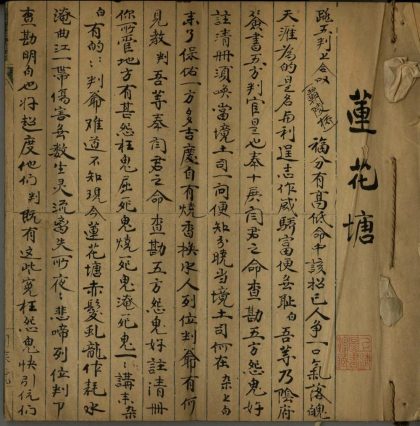 蓮花塘
跳五判上合唱 福分有高低命中該招已人爭一口氣落魄
天涯為的是名与利逞志作威驕富便無恥白吾等乃陰府
簽書五方判官是也奉十殿閻君之命查勘五方怨鬼好
註清冊須喚當境土司一問便知分曉當境土司何在杂上白
来了保佑一方多吉慶自有燒香換水人列位判爺有何
見教判吾等奉閻君之命查勘五方怨鬼好註清冊
你所管地方有甚怨枉鬼屈死鬼燒死鬼淹死鬼一一講来杂
白有的〻判爺難道不知現今蓮花塘赤髮乱龍作耗水
淹曲江一帶傷害無数生灵流离失所夜〻悲啼列位判
查勘明白也好超度他们判既有这些冤枉怨鬼快引